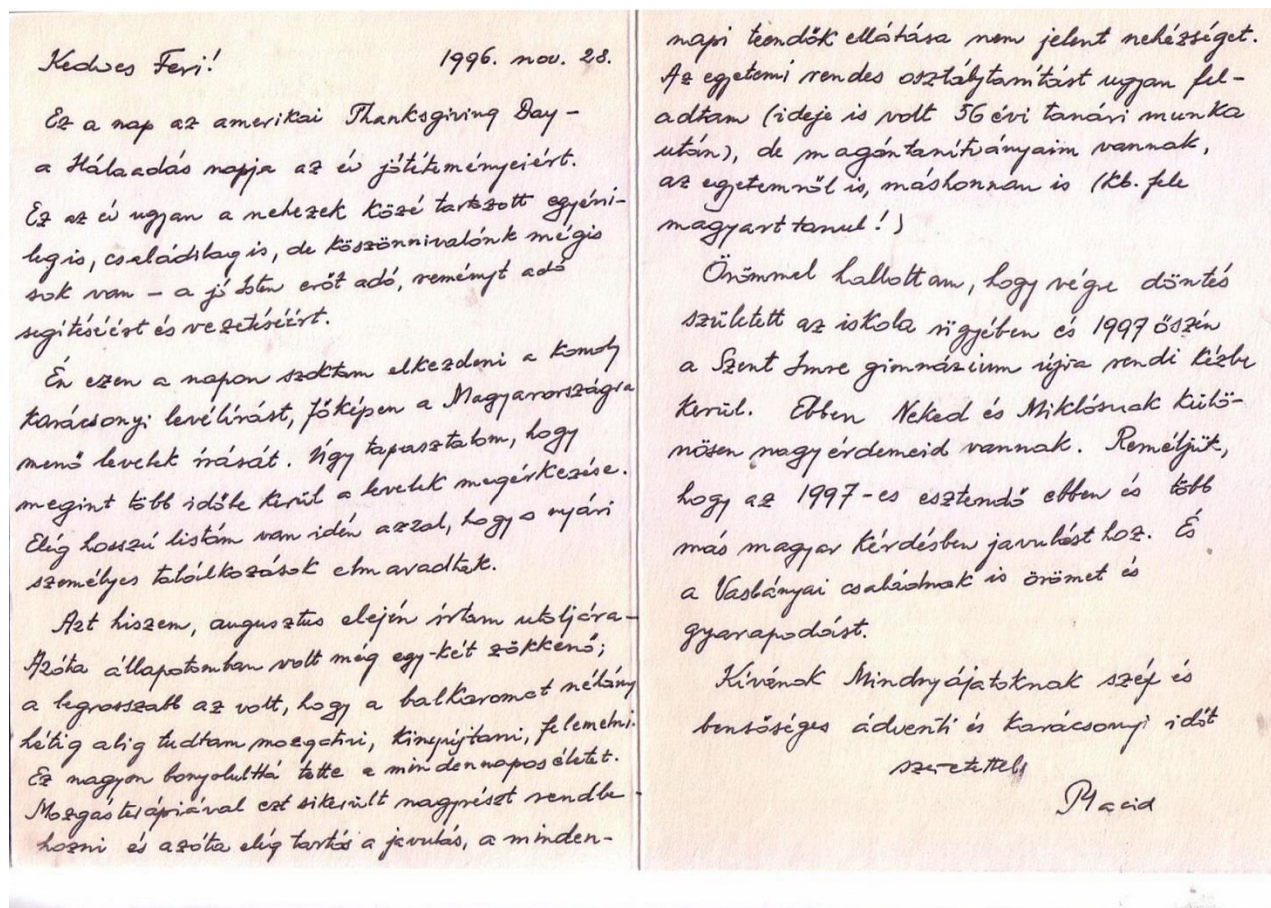 Kedves Feri! 1996. nov. 28.
Ez a nap az amerikai Thanksgiving Day –
a Hálaadás napja az év jótéteményeiért.
Ez az év ugyan a nehezek közé tartozott egyéni-
legis, családilag is, de köszönnivalónk mégis
sok van – a jó Isten erőt adó, reményt adó
segítéséért és vezetéséért.
Én ezen a napon szoktam elkezdeni a komoly
karácsonyi levélírást, főképen a Magyarországra
menő levelek írását. Úgy tapasztalom, hogy
megint több időbe kerül a levelek megérkezése.
Elég hosszú listám van idén azzal, hogy a nyári
személyes találkozások elmaradtak.
Azt hiszem, augusztus elején írtam utoljára –
Azóta állapotomban volt még egy-két zökkenő;
a legrosszabb az volt, hogy a balkaromat néhány
hétig alig tudtam mozgatni, kinyújtani, felemelni.
Ez nagyon bonyolulttá tette a mindennapos életet.
Mozgásterápiával ezt sikerült nagyrészt rendbe
hozni és azóta elég tartós a javulás, a minden-
napi teendők ellátása nem jelent nehézséget.
Az egyetemi rendes osztálytanítást ugyan fel-
adtam (ideje is volt 56 évi tanári munka
után), de magántanítványaim vannak,
az egyetemről is, máshonnan is (kb. fele
magyart tanul!)
Örömmel hallottam, hogy végre döntés
született az iskola ügyében és 1997 őszén
a Szent Imre gimnázium újra rendi kézbe
kerül. Ebben Neked és Miklósnak külö-
nösen nagy érdemeid vannak. Reméljük,
hogy az 1997-es esztendő ebben és több
más magyar kérdésben javulást hoz. És
a Vasbányai családnak is örömet és
gyarapodást.
Kívánok Mindnyájatoknak szép és
bensőséges ádventi és karácsonyi időt
szeretettel
Placid